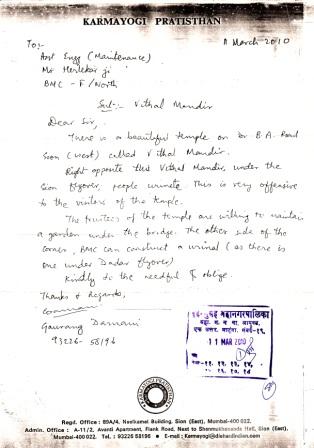 KARMAYOGI PRATISTHAN
To:-
March 2010
Asst Engg (Maintenance)
Mr Herlekar ji
BMC - F/North
Sub:- Vithal Mandir
Dear Sir,
There is a beautiful temple on Dr B.A. Road
Sion (west) called Vithal Mandir.
Right opposite this Vithal Mandir, under the
Sion flyover, people urinate. This is very offensive
to the visitors of the temple.
The trustees of the temple are willing to maintain
a garden under the bridge. The other side of the
corner, BMC can construct a urinal (as there is
one under Dadar flyover)
Kindly do the needful & oblige.
Thanks & Regards,
Gaurang Damani
93226-58196
महानगरपालिका
11 MAR 2010
KARMAYOGI PRATISTHAN
Regd. Office : 89A/4, Neelkamal Building, Sion (East), Mumbai-400 022.
Admin. Office : A-11/2, Avanti Apartment, Flank Road, Next to Shanmukhananda Hall, Sion (East),
Mumbai-400 022. Tel. : 93226 58196 • E-mail : Karmayogi@diehardindian.com